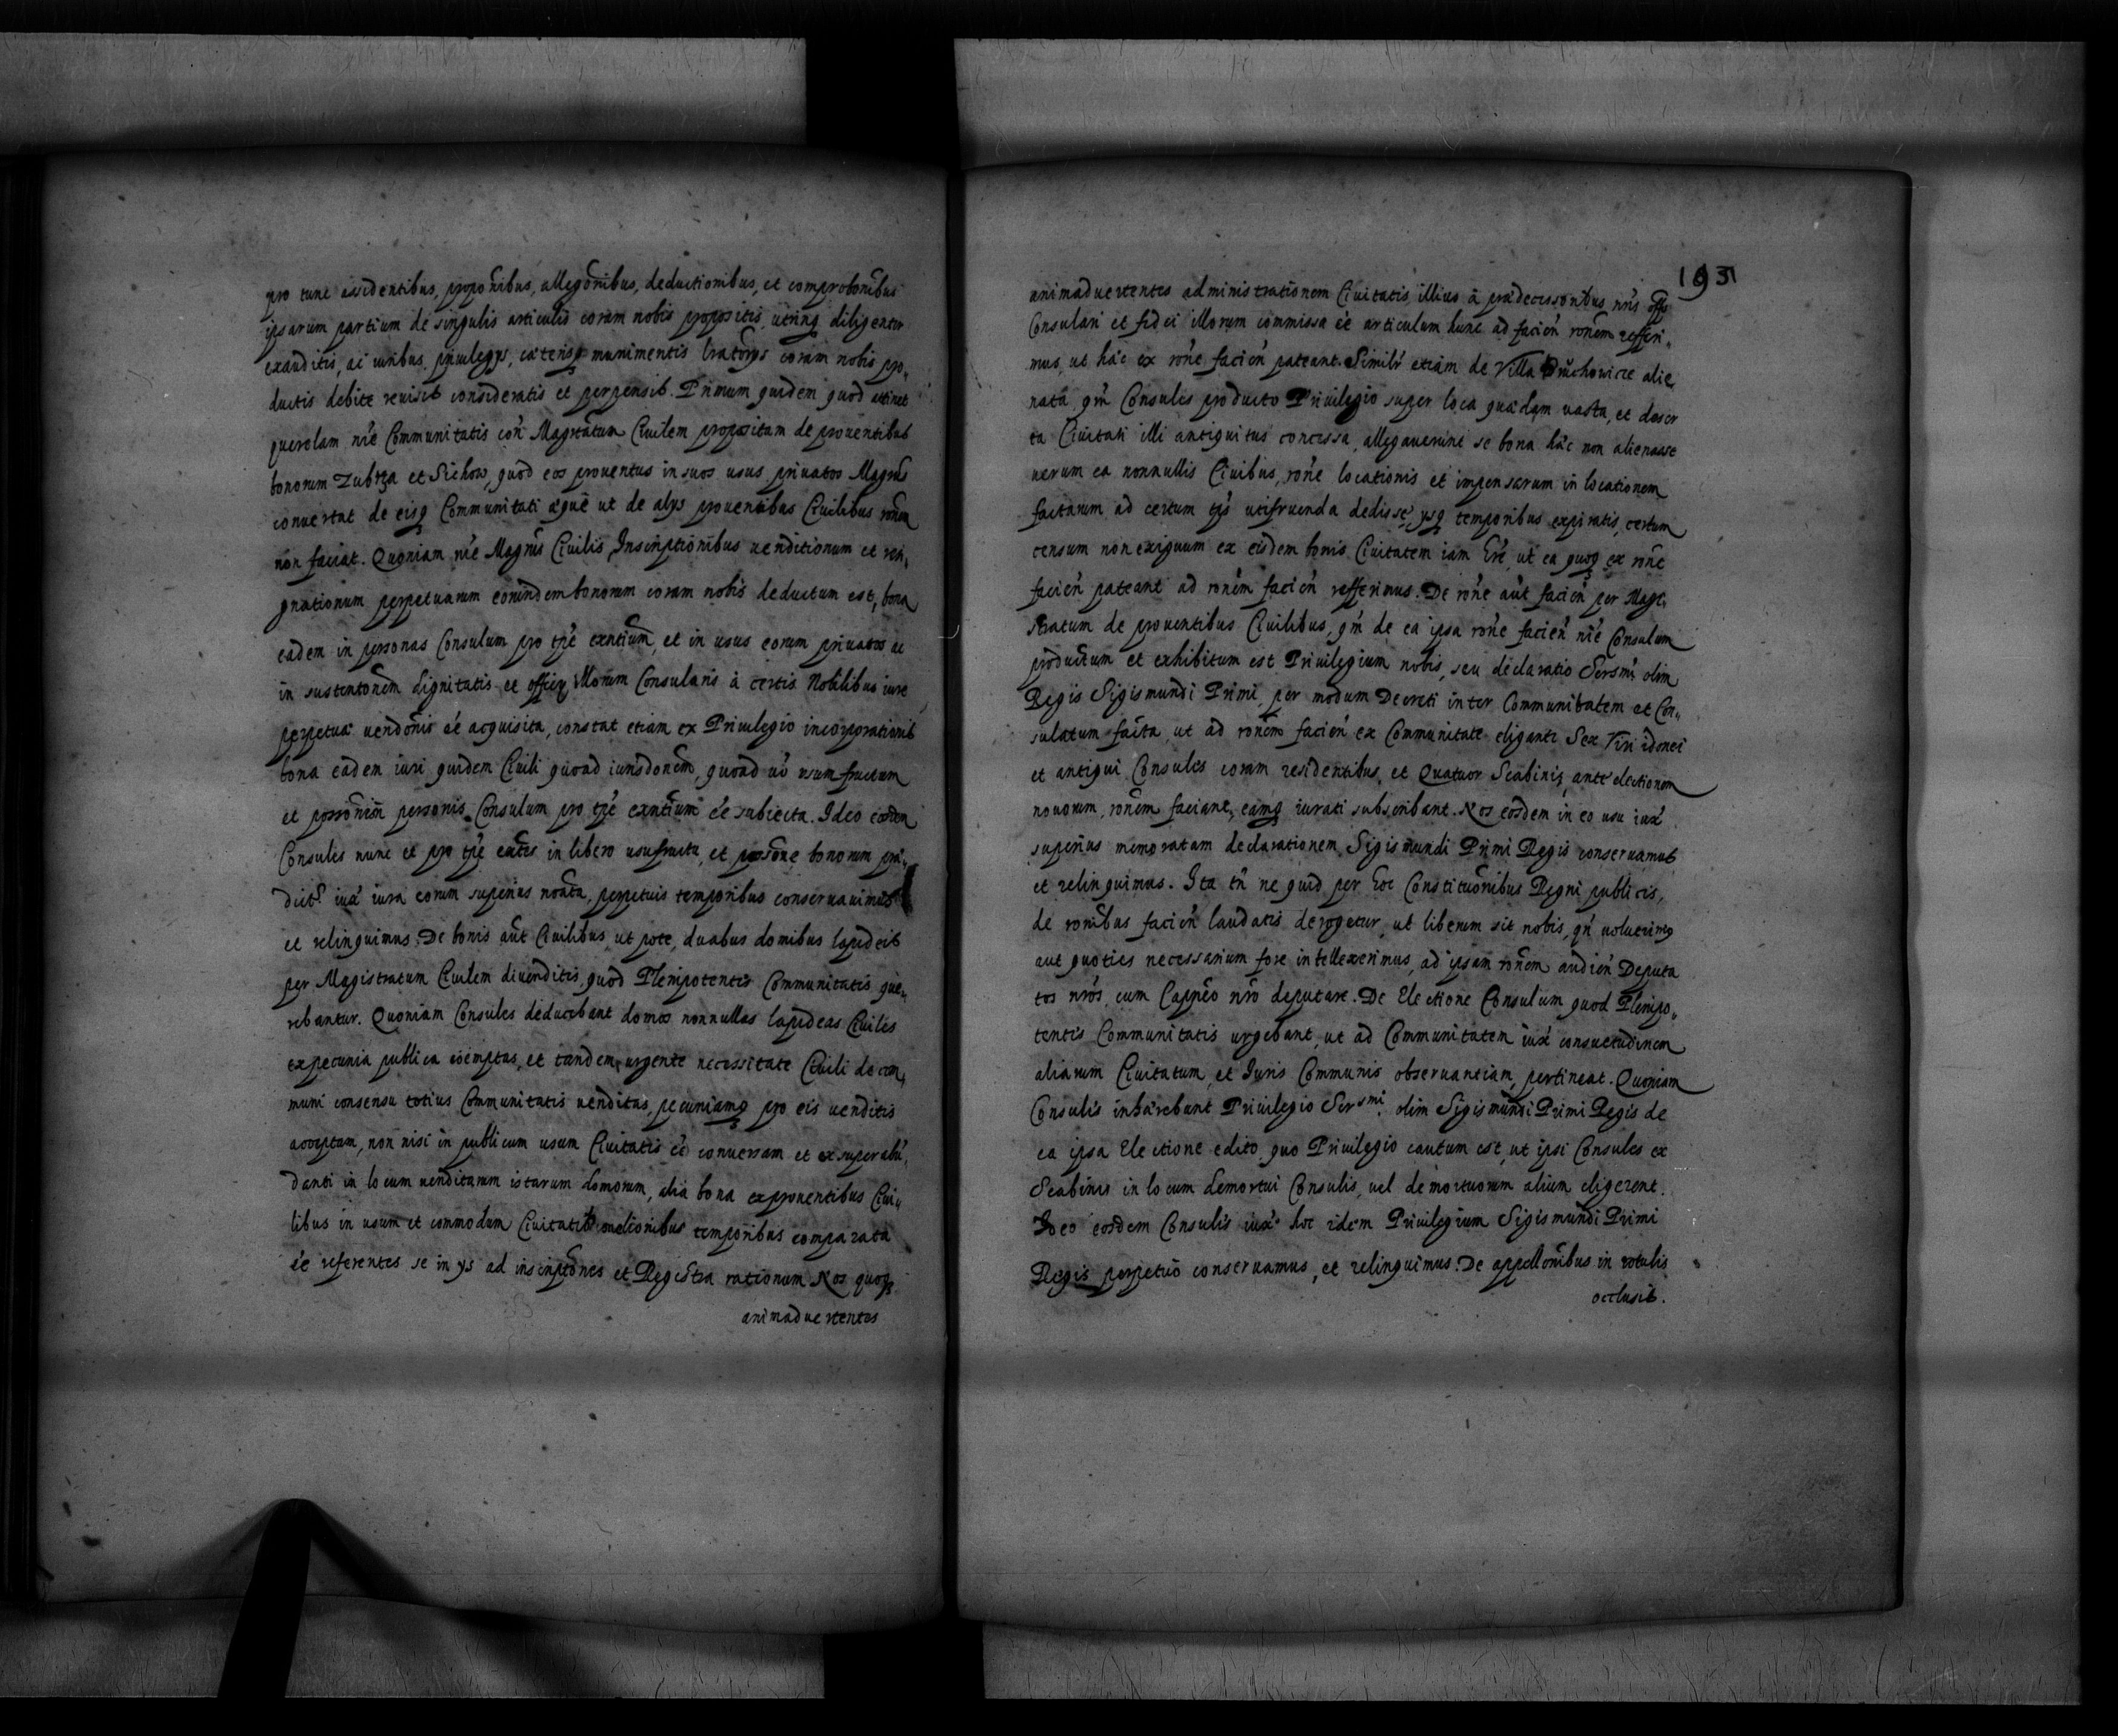 pro tunc assidentibus, propōnibus, allegōnibus, deductionibus, et comprobōnibus
ipsarum partium de singulis articulis coram nobis propositis, utrinq diligenter
exauditis, ac iuribus, priuilegijs, cæterisq munimentis coram nobis pro„
ductis debite reuisis consideratis et perpensis. Primum quidem quod attinet
querelam nr̃e Communitatis con̄ Magr̃atum Ciuilem propositam de prouentibus
bonorum Zubrza et Sichow, quod eos prouentus in suos usus priuatos Magr̃us
conuertat de eisq Communitati æquè ut de alijs prouentibus Ciuilibus rōnem
non faciat. Quoniam nr̃e Magr̃us Ciuilis Inscriptionibus uenditionum et resi„
gnationum perpetuarum eorundem bonorum coram nobis deductum est, bona
eadem in personas Consulum pro tp̃e exñtium, et in usus eorum priuatos ac
in sustentōnem dignitatis et officij illorum Consularis à certis Nobilibus iure
perpetuæ uendōnis eẽ acquisita, constat etiam ex Priuilegio incorporationis
bona eadem iuri quidem Ciuili quoad iurisdōnem, quoad uō usum fructum
et possōnem personis Consulum pro tp̃e exñtium eẽ subiecta. Ideo eosdem
Consules nunc et pro tp̃e exñtes in libero usufructu, et possōne bonorum præ„
dict. iux̃ iura eorum superius nōata, perpetuis temporibus conseruauimus
et relinquimus. De bonis aũt Ciuilibus, ut pote, duabus domibus lapideis
per Magistratum Ciuilem diuenditis, quod Plenipotentis Communitatis que„
rebantur. Quoniam Consules deducebant domos nonnullas lapideas Ciuiles
ex pecunia publica coemptas, et tandem urgente necessitate Ciuili de com„
muni consensu totius Communitatis uenditas, pecuniamq pro eis uenditis
acceptam, non nisi in publicum usum Ciuitatis eẽ conuersam et ex superabũ„
danti in locum uenditarum istarum domorum, alia bona ex prouentibus Ciui„
libus in usum et commodum Ciuitatis melioribus temporibus comparata
eẽ referentes se in ijs ad inscriptōnes et Regestra rationum Nos quoq
animaduertentes
193
animaduertentes administrationem Ciuitatis illius à prædecessoribus nr̃is offo
Consulari et fidei illorum commissa eẽ articulum hunc ad facieñ rōnem refferi„
mus, ut hæc ex rōne facieñ pateant. Similr̃ etiam de Villa Bruchowice alie„
nata qm̃ Consules producto Priuilegio super loca quædam uasta, et deser
ta Ciuitati illi antiquitus concessa, allegauerunt se bona hæc non alienasse
uerum ea nonnullis Ciuibus, rōne locationis et impensarum in locationem
factarum ad certum tp̃s utifruenda dedisse, ijsq temporibus expiratis, certum
censum non exiguum ex eisdem bonis Ciuitatem iam hr̃e, ut ea quoq ex rōne
facieñ pateant ad rōnem facieñ refferimus. De rōne aũt facieñ per Magi„
stratum de prouentibus Ciuilibus, qm̃ de ea ipsa rōne facieñ nr̃e Consulum
productum et exhibitum est Priuilegium nobis, seu declaratio Sersmi olim
Regis Sigismundi Primi, per modum Decreti inter Communitatem et Con„
sulatum facta, ut ad rōnem facieñ ex Communitate eligantr Sex Viri idonei
et antiqui Consules coram residentibus, et Quatuor Scabinis, ante electionem
nouorum, rōnem faciant, eamq iurati subscribant. Nos eosdem in eo usu iux̃
superius memoratam declarationem Sigismundi Primi Regis conseruamus
et relinquimus. Ita tñ ne quid per hoc Constituōnibus Regni publicis,
de rōnibus facieñ laudatis derogetur, ut liberum sit nobis, qñ uoluerimq
aut quoties necessarium fore intellexerimus, ad ipsam rōnem audieñ Deputa
tos nr̃os, cum Cappñeo nr̃o deputare. De Electione Consulum quod Plenipo„
tentis Communitatis urgebant, ut ad Communitatem iux̃ consuetudinem
aliarum Ciuitatum, et Iuris Communis obseruantiam, pertineat. Quoniam
Consulis inhærebant Priuilegio Sersmi. olim Sigismundi Primi Regis de
ea ipsa Electione edito, quo Priuilegio cautum est, ut ipsi Consules ex
Scabinis in locum demortui Consulis, uel demortuorum alium eligerent.
Ideo eosdem Consulis iux̃ hoc idem Priuilegium Sigismundi Primi
Regis perpetuō conseruamus, et relinquimus. De appellōnibus in rotulis
occlusis.